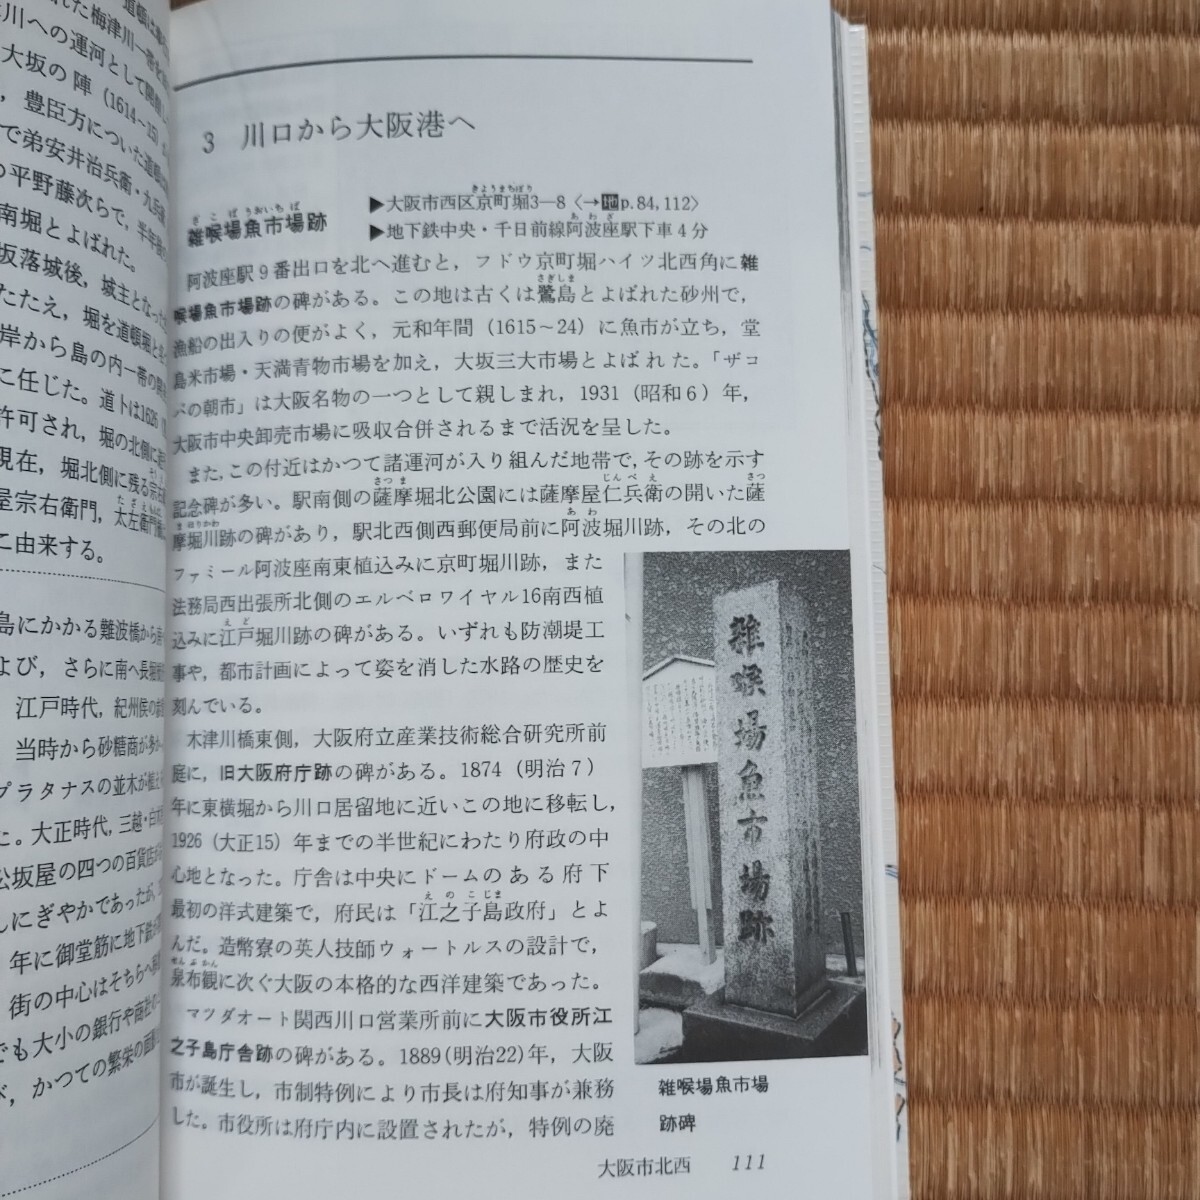 3 川口から大阪港へ
ざこばうおいちば
雑喉場魚市場跡
きようまちぼり
▶大阪市西区京町堀3—8〈→地p.84,112〉
あわざ
▶地下鉄中央・千日前線阿波座駅下車4分
阿波座駅9番出口を北へ進むと，フドウ京町堀ハイツ北西角に雑
さぎしま
喉場魚市場跡の碑がある。この地は古くは鷺島とよばれた砂州で，
漁船の出入りの便がよく，元和年間（1615～24）に魚市が立ち，堂
島米市場・天満青物市場を加え，大坂三大市場とよばれた。「ザコ
バの朝市」は大阪名物の一つとして親しまれ，1931（昭和6）年，
大阪市中央卸売市場に吸収合併されるまで活況を呈した。
また，この付近はかつて諸運河が入り組んだ地帯で，その跡を示す
さつま じんべえ さつ
記念碑が多い。駅南側の薩摩堀北公園には薩摩屋仁兵衛の開いた薩
まほりかわ あわ
摩堀川跡の碑があり，駅北西側西郵便局前に阿波堀川跡，その北の
ファミール阿波座南東植込みに京町堀川跡，また
法務局西出張所北側のエルベロワイヤル16南西植
えど
込みに江戸堀川跡の碑がある。いずれも防潮堤工
事や，都市計画によって姿を消した水路の歴史を
刻んでいる。
木津川橋東側，大阪府立産業技術総合研究所前
庭に，旧大阪府庁跡の碑がある。1874（明治7）
年に東横堀から川口居留地に近いこの地に移転し，
1926（大正15）年までの半世紀にわたり府政の中
心地となった。庁舎は中央にドームのある府下
えのこじま
最初の洋式建築で，府民は「江之子島政府」とよ
んだ。造幣寮の英人技師ウォートルスの設計で，
せんぷかん
泉布観に次ぐ大阪の本格的な西洋建築であった。
マツダオート関西川口営業所前に大阪市役所江
之子島庁舎跡の碑がある。1889（明治22）年，大阪
市が誕生し，市制特例により市長は府知事が兼務
した。市役所は府庁内に設置されたが，特例の廃
雑喉場魚市場跡
雑喉場魚市場
跡碑
大阪市北西 111
川への運河として開削
大坂の陣（1614～15）
，豊臣方についた道頓
で弟安井治兵衛・九兵衛
の平野藤次らで，
南堀とよばれた。
坂落城後，城主となった
たたえ，堀を道頓堀と
岸から島の内一帯の
に任じた。道トは1626
許可され，堀の北側に
現在，堀北側に残る宗右衛
たざえもん
屋宗右衛門，太左衛門
に由来する。
島にかかる難波橋から
よび，さらに南へ長堀
江戸時代，紀州侯の
当時から砂糖商が多か
プラタナスの並木が
た。大正時代，三越・白木
松坂屋の四つの百貨店が
んにぎやかであったが，
年に御堂筋に地下鉄が
街の中心はそちらへ移
でも大小の銀行や商社の
べ，かつての繁栄の面影